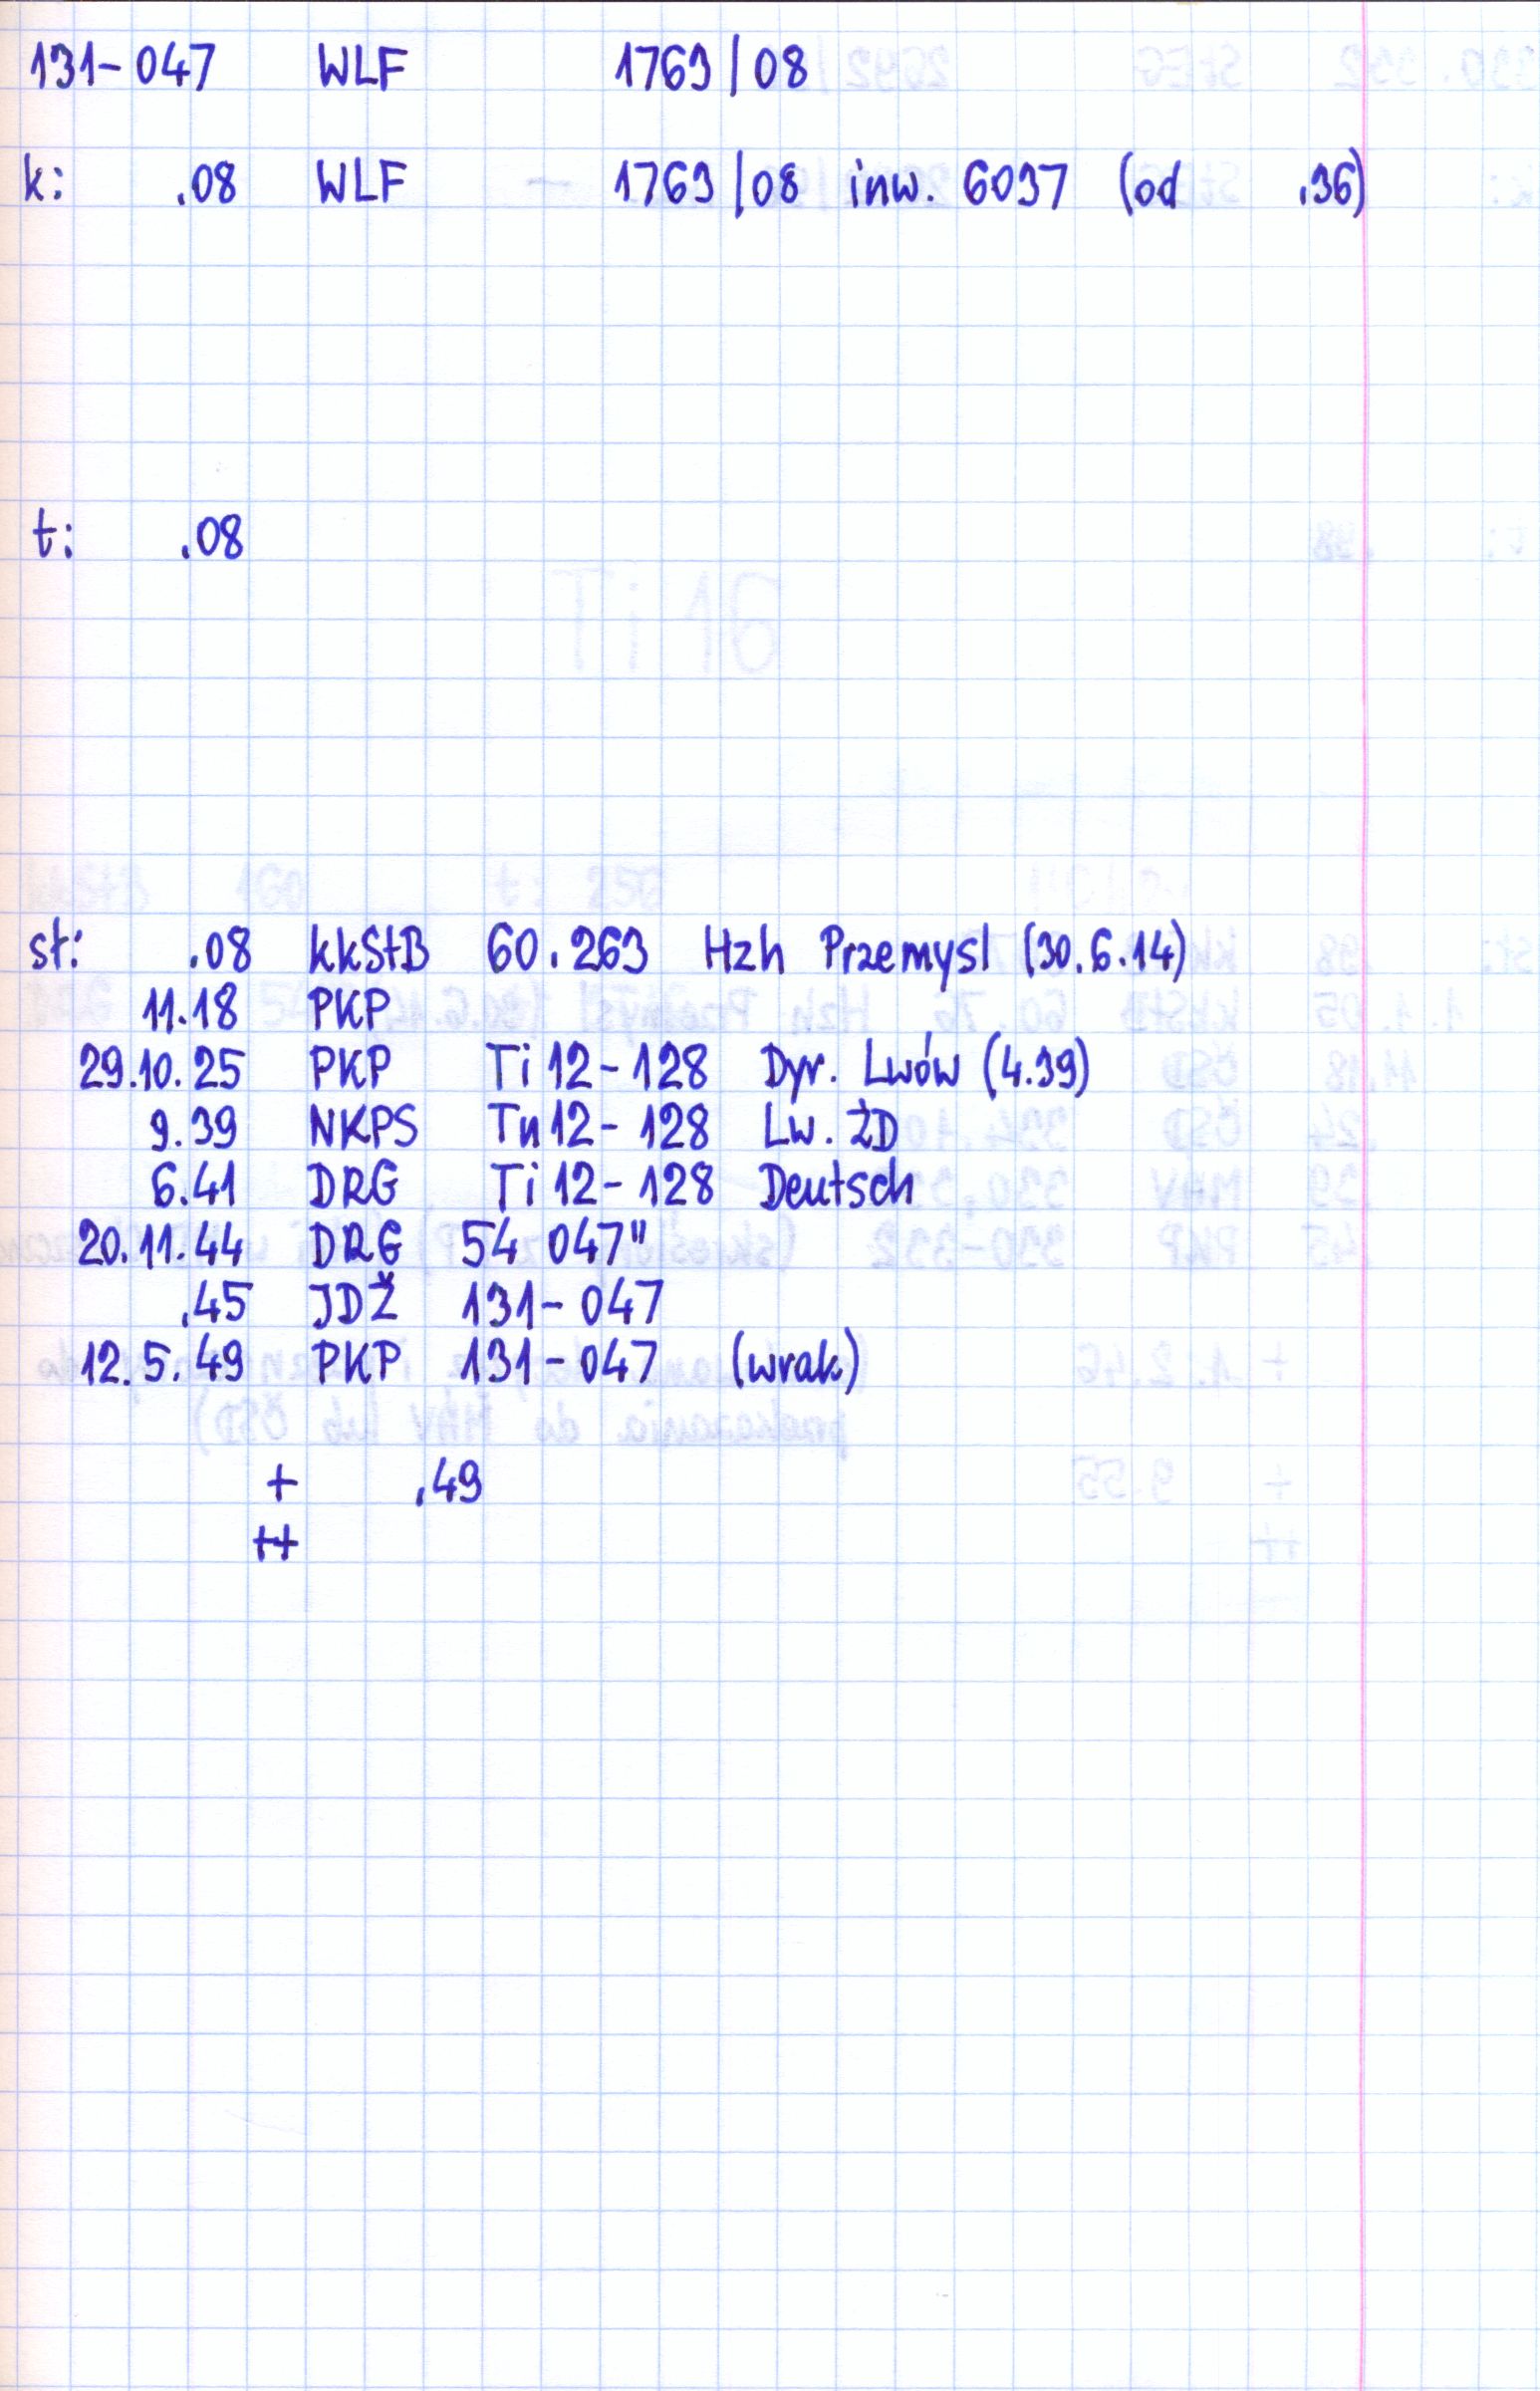 131-047 WLF 1763/08
k: .08 WLF - 1763/08 inw. 6037 (od .36)
t: .08
st: .08 kkStB 60.263 Hzh Przemysl (30.6.14)
11.18 PKP
29.10.25 PKP Ti 12-128 Dyr. Lwów (4.39)
9.39 NKPS Tu 12-128 Lw. ŻD
6.41 DRG Ti 12-128 Deutsch
20.11.44 DRG 54 047"
.45 JDŽ 131-047
12.5.49 PKP 131-047 (wrak)
+ .49
++